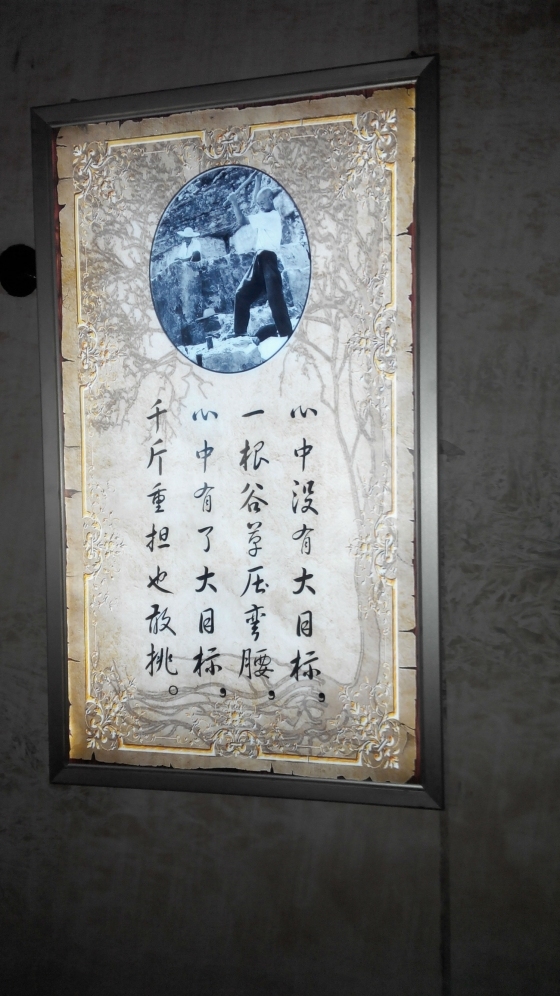 心中没有大目标，
一根谷草压弯腰，
心中有了大目标，
千斤重担也敢挑。